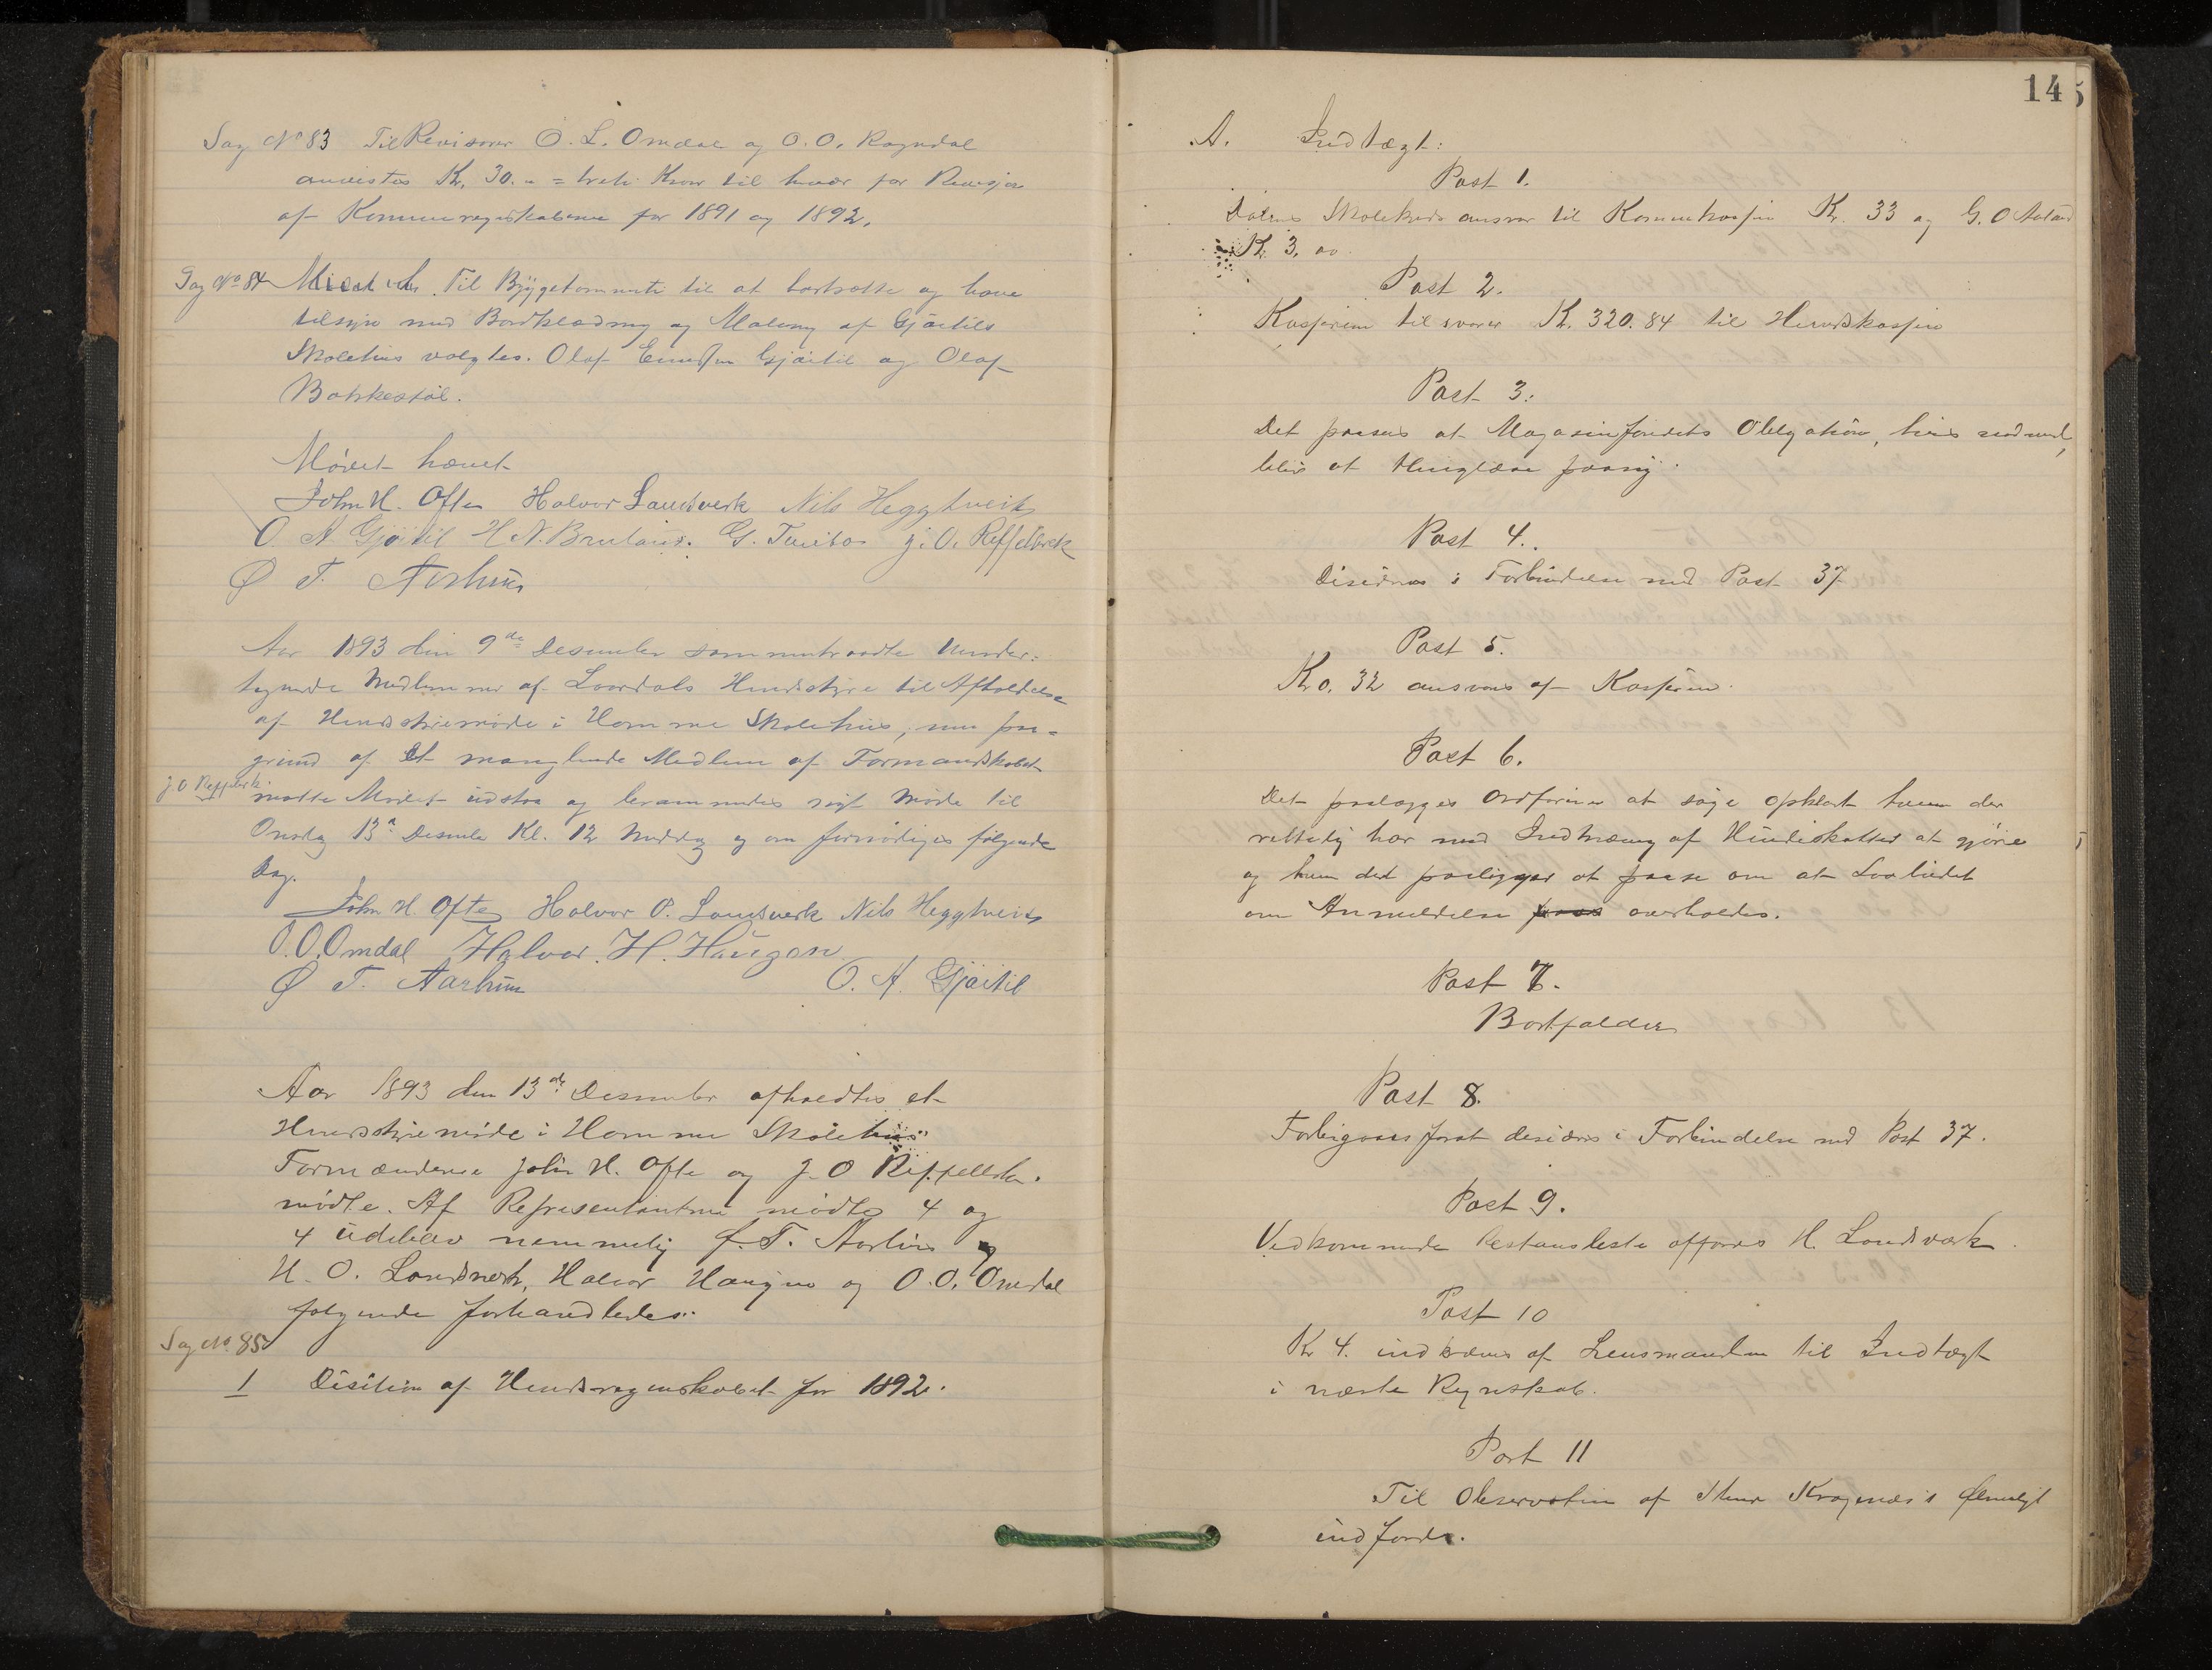 Sag No 83 Til Revisorer O. L. Omdal og O. O. Rogndal
anvistes Kr. 30. = treti Kroner til hver for Revisjon
af Kommuneregnskaberne for 1891 og 1892.
Sag No 84 Til Byggekommite til at bortsætte og have
tilsyn med Bordklædning og Maling af Gjøitils
Skolehus valgtes. Olaf Gjøitil og Olaf
Bakkestøl.
Mødet hævet
John H. Ofte Halvor Landsverk Nils Heggtveit
O. A. Gjøitil H. N. Bruland. G. Tveito J. O. Reppelbrek
Ø T. Aarhus
Aar 1893 den 9de Desember sammentraadte Under-
tegnede Medlemmer af Laardals Herredstyre til Afholdelse
af Herredstyremøde i Homme Skolehus, men paa-
grund af Et manglende Medlem af Formandskabet
J O Reppelbrek
maatte Mødet udstaa og berammedes nyt Møde til
Onsdag 13de Desember Kl. 12 Middag og om fornødiges følgende
Dag.
John H. Ofte Halvor O. Landsverk Nils Heggtveit
O. O. Omdal Halvor. H. Haugen
Ø T. Aarhus O. A. Gjøitil
Aar 1893 den 13de Desember afholdtes et
Herredstyremøde i Homme Skolehus
Formændene John H. Ofte og J. O Reppelbrek.
mødte. Af Representanterne mødte 4 og
4 udeblev nemmelig Ø. T. Aarhus og
H. O. Landsverk, Halvor Haugen og O. O. Omdal
følgende forhandledes:
Sag No. 85
1 Disition af Herredsregnskabet for 1892.
14
A. Indtægt:
Post 1.
Dalens Skolekreds ansvar til Kommunekassen Kr. 33 og G. O Aaland
Kr 3,00.
Post 2.
Kasseren tilsvarer Kr. 320.84 til Herredskassen
Post 3.
Det paasees at Magasinfondets Obligation,
blir at thinglæse paany.
Post 4.
Disideres i Forbindelse med Post 37
Post 5.
Kr 0. 32 ansvares af Kasseren.
Post 6.
Det paalægges Ordføreren at søge opklart hvem der
rettelig har med Inddrivning af Hundeskatten at gjøre
og hvem det paaligger at paase om at Lovbudet
om Anmeldelse overholdes.
Post 7.
Bortfalder
Post 8.
Forbigaaes forat desideres i Forbindelse med Post 37.
Post 9.
Vedkommende Restanseliste affordres H. Landsverk.
Post 10
Kr 4. indkræves af Lensmanden til Indtægt
i næste Regnskab.
Post 11
Til Observation af Kragenæs's
indfordr.